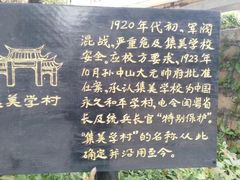 1920年代初,军阀
混战,严重危及集美学校
安全,应校方要求,1923年
10月孙中山大元帅府批准
在案,承认集美学校为中国
永久和平学村,电令闽粤省
长及统兵长官“特别保护”
“集美学村”的名称从此
确定并沿用至今。
美学村